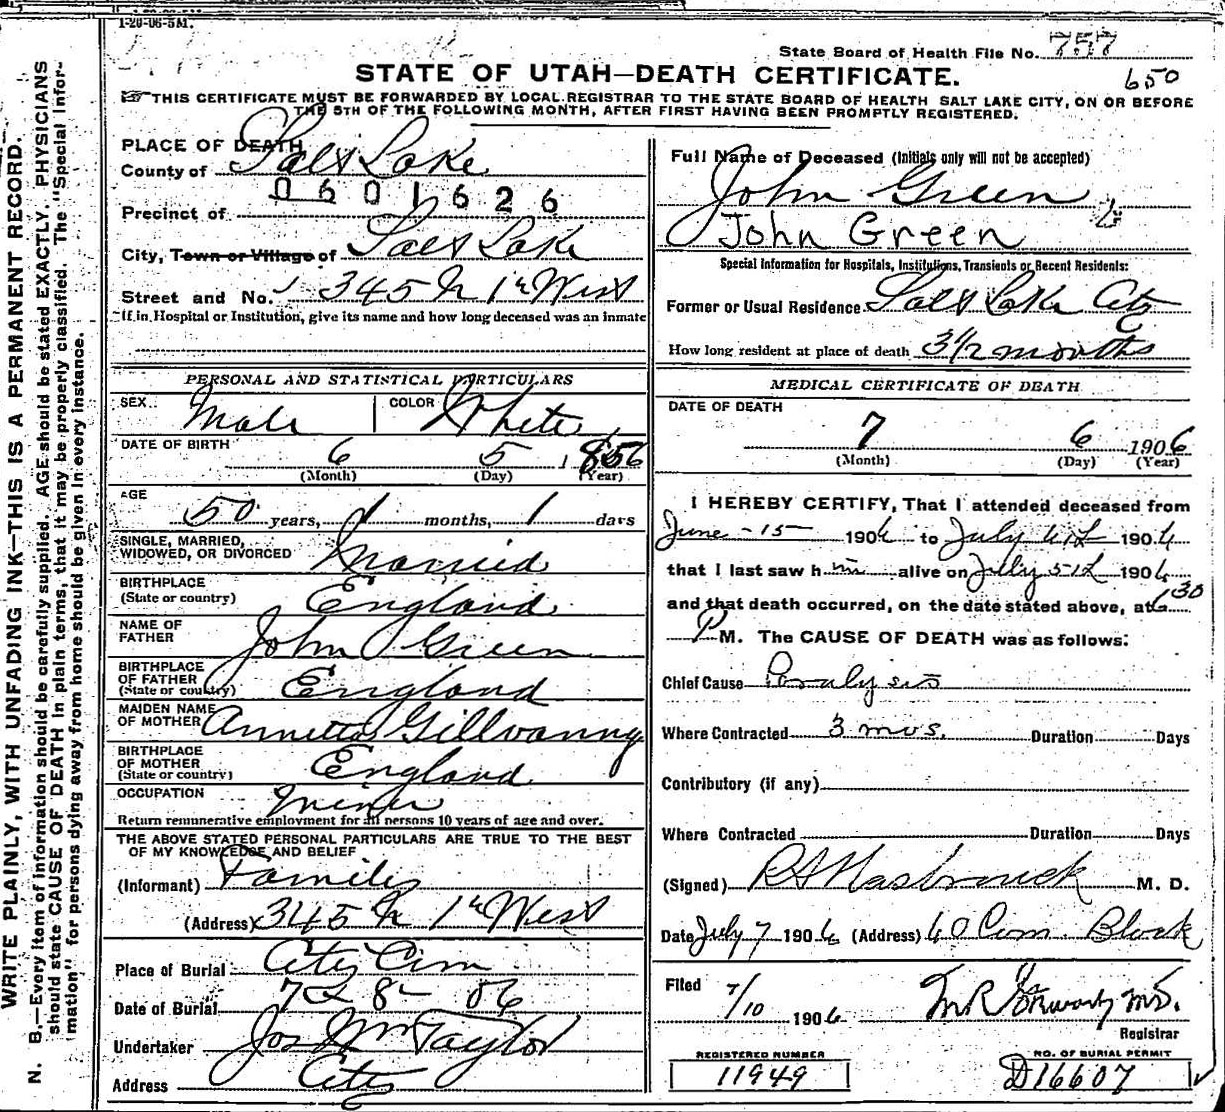 1-20-06-5M.
State Board of Health File No. 757
650
STATE OF UTAH—DEATH CERTIFICATE.
THIS CERTIFICATE MUST BE FORWARDED BY LOCAL REGISTRAR TO THE STATE BOARD OF HEALTH SALT LAKE CITY, ON OR BEFORE
THE 5TH OF THE FOLLOWING MONTH, AFTER FIRST HAVING BEEN PROMPTLY REGISTERED.
PLACE OF DEATH
County of Salt Lake
0601626
Precinct of
City, Town or Village of Salt Lake
Street and No. 345 N 1st West
If in Hospital or Institution, give its name and how long deceased was an inmate
PERSONAL AND STATISTICAL PARTICULARS
SEX Male COLOR White
DATE OF BIRTH 6 5 1856
(Month) (Day) (Year)
AGE
50 years, 1 months, 1 days
SINGLE, MARRIED,
WIDOWED, OR DIVORCED Married
BIRTHPLACE
(State or country) England
NAME OF
FATHER John Green
BIRTHPLACE
OF FATHER
(State or country) England
MAIDEN NAME
OF MOTHER Annetta Gillvanny
BIRTHPLACE
OF MOTHER
(State or country) England
OCCUPATION Miner
Return remunerative employment for all persons 10 years of age and over.
THE ABOVE STATED PERSONAL PARTICULARS ARE TRUE TO THE BEST
OF MY KNOWLEDGE AND BELIEF
(Informant) Family
(Address) 345 N 1st West
Place of Burial City Cem
Date of Burial 7 8 - 06
Undertaker Jos Wm Taylor
Address City
Full Name of Deceased (Initials only will not be accepted)
John Green
John Green
Special Information for Hospitals, Institutions, Transients or Recent Residents:
Former or Usual Residence Salt Lake City
How long resident at place of death 3 1/2 months
MEDICAL CERTIFICATE OF DEATH
DATE OF DEATH
7 6 1906
(Month) (Day) (Year)
I HEREBY CERTIFY, That I attended deceased from
June - 15 1906 to July 6th 1906
that I last saw h im alive on July 5th 1906
and that death occurred, on the date stated above, at 6 30
P M. The CAUSE OF DEATH was as follows:
Chief Cause Paralysis
Where Contracted 3 mos. Duration Days
Contributory (if any)
Where Contracted Duration Days
(Signed) R A Hasbrouck M. D.
Date July 7 1906 (Address) 40 Com. Block
Filed 7/10 1906 M.D.
Registrar
REGISTERED NUMBER
11949
NO. OF BURIAL PERMIT
D16607
WRITE PLAINLY, WITH UNFADING INK—THIS IS A PERMANENT RECORD.
N. B.—Every item of information should be carefully supplied. AGE should be stated EXACTLY. PHYSICIANS
should state CAUSE OF DEATH in plain terms, that it may be properly classified. The "Special Infor-
mation" for persons dying away from home should be given in every instance.